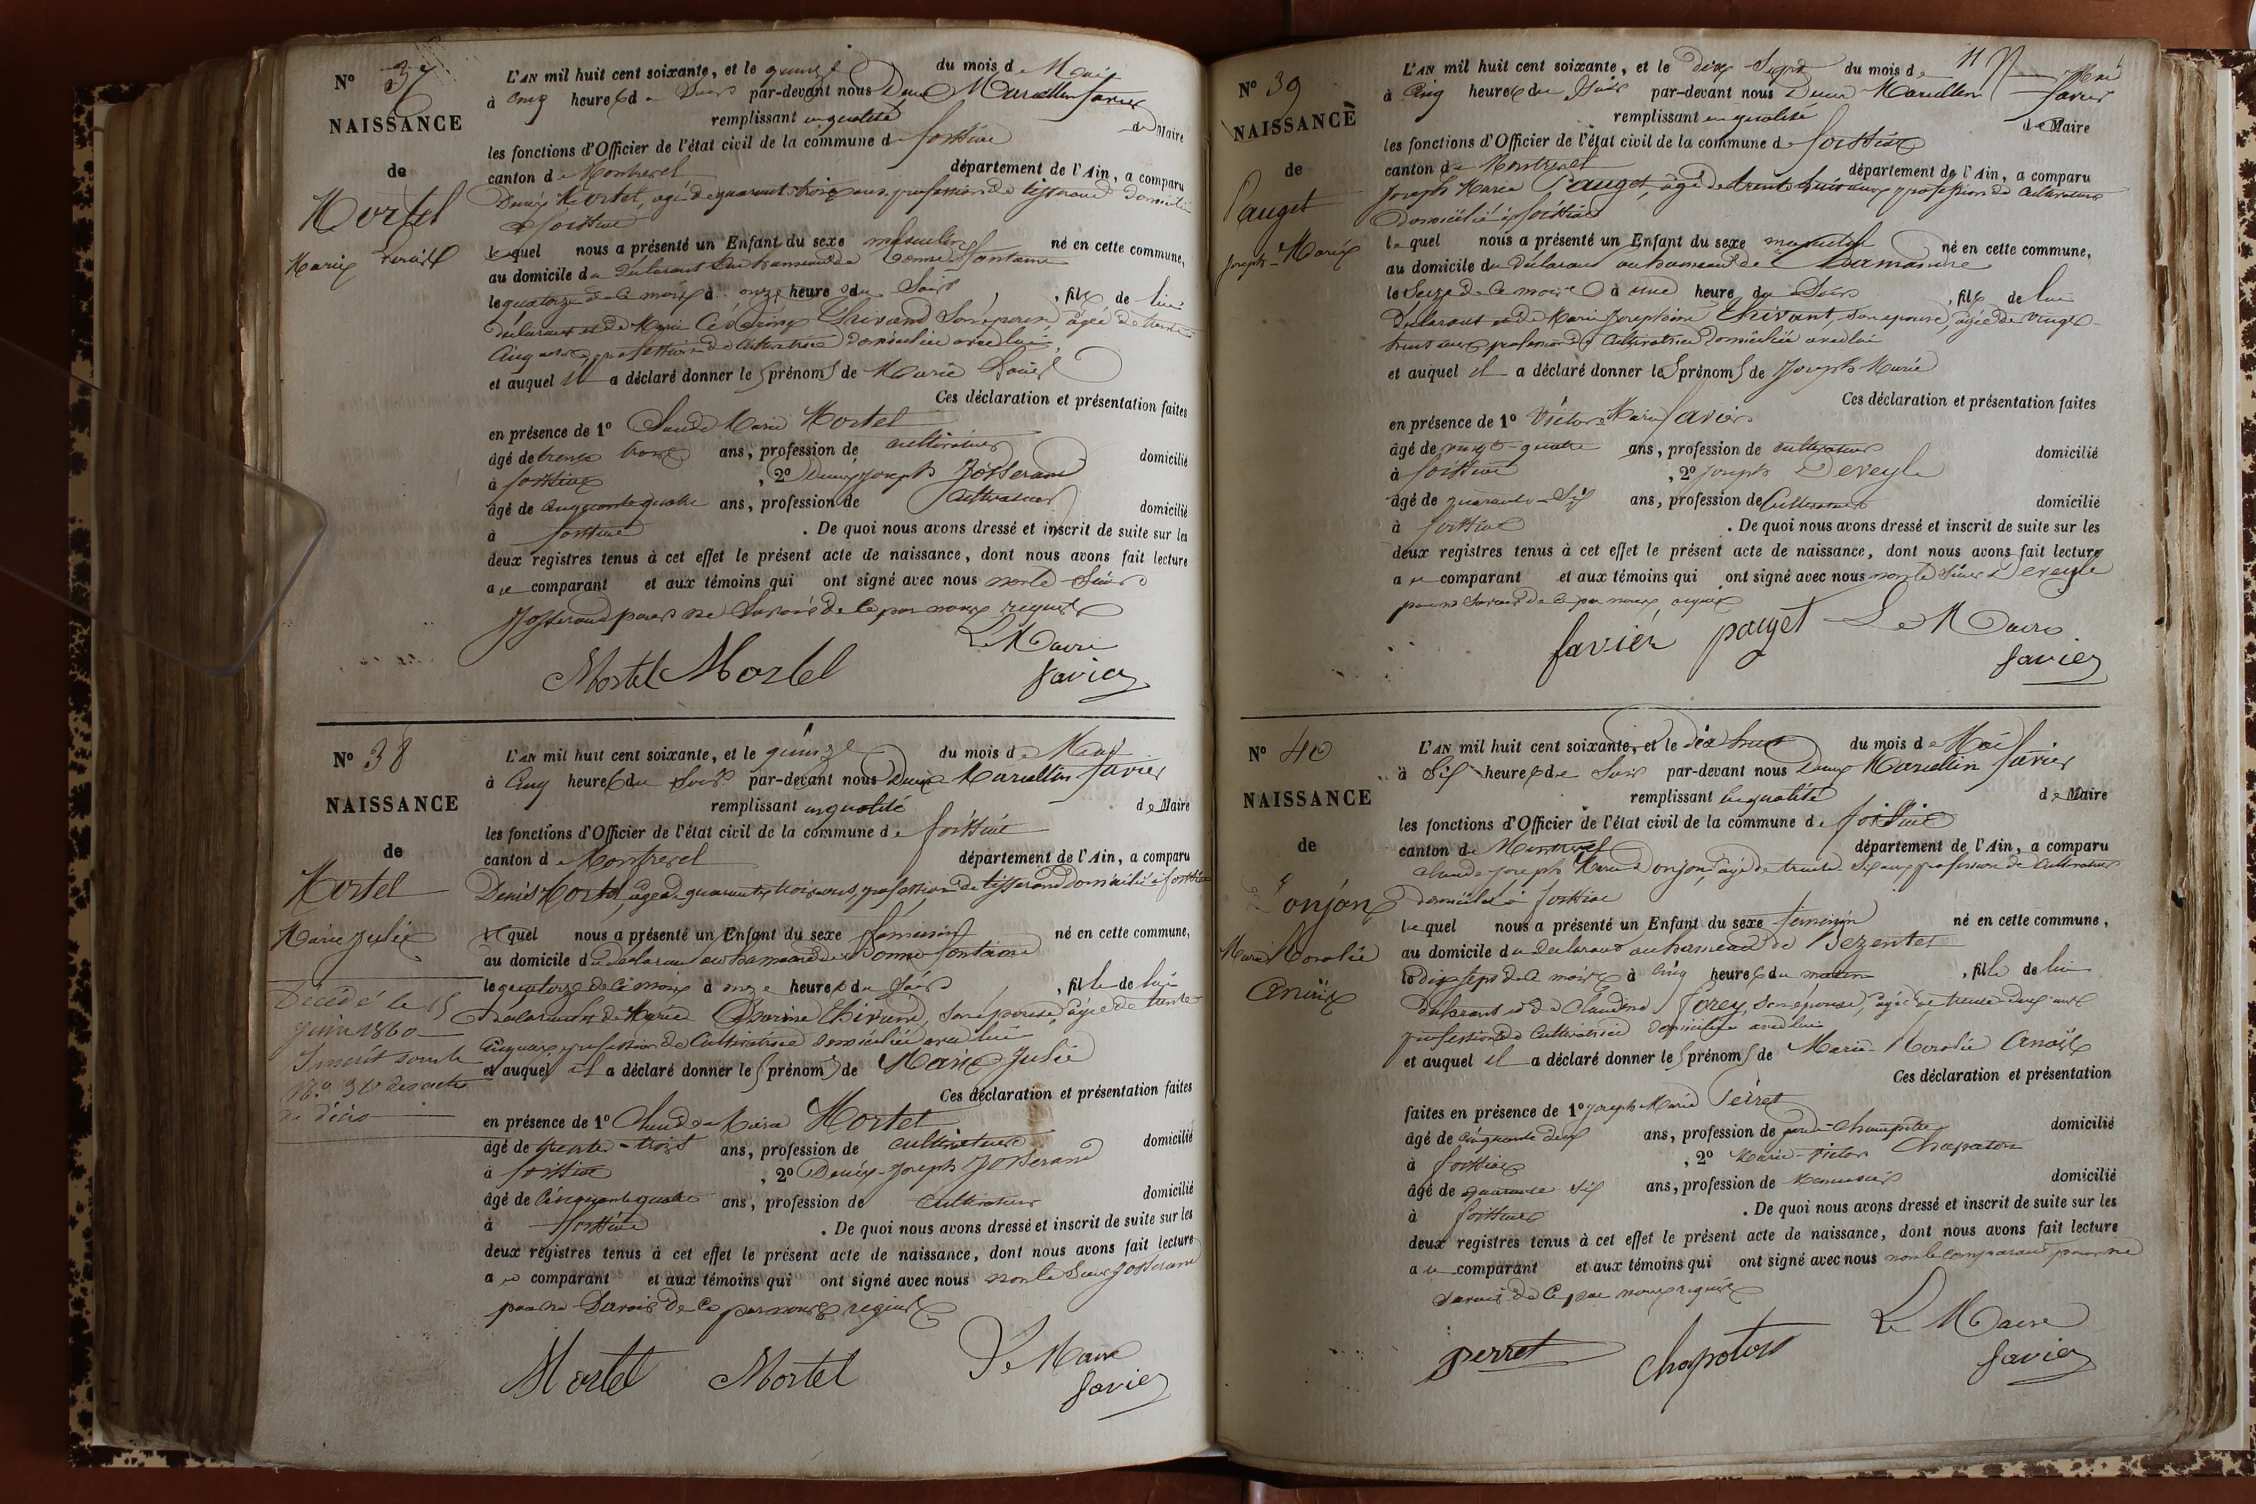 N° 37
NAISSANCE
de
Mortel
Marie Louis
L'AN mil huit cent soixante, et le quinze du mois de Mai
à Cinq heures du Soir par-devant nous Denis Marcellin favier
remplissant en qualité de Maire
les fonctions d'Officier de l'état civil de la commune de foissiat
canton de Montrevel département de l'Ain, a comparu
Denis Mortel, agé de quarante trois ans, profession de tisserand domicilié
à foissiat
lequel nous a présenté un Enfant du sexe masculin né en cette commune,
au domicile du déclarant au hameau de Bonne fontaine
le quatorze de ce mois à onze heures du Soir, fils de lui
déclarant et de Marie Chivand Son épouse, âgée de trente
Cinq ans, profession de Cultivatrice domiciliée avec lui,
et auquel il a déclaré donner les prénoms de Marie Louis
Ces déclaration et présentation faites
en présence de 1° Claude Marie Mortel
âgé de trente trois ans, profession de cultivateur domicilié
à foissiat, 2° Denis Joseph Josserand
âgé de Cinquante quatre ans, profession de Cultivateur domicilié
à foissiat. De quoi nous avons dressé et inscrit de suite sur les
deux registres tenus à cet effet le présent acte de naissance, dont nous avons fait lecture
au comparant et aux témoins qui ont signé avec nous non le Sieur
Josserand pour ne Savoir de ce par nous requis
Le Maire
Mortel Mortel favier
N° 38
NAISSANCE
de
Mortel
Marie Julie
Décédé le 15
Juin 1860
Inscrit sous le
N° 31 des actes
de décès
L'AN mil huit cent soixante, et le quinze du mois de Mai
à Cinq heures du Soir par-devant nous Denis Marcellin favier
remplissant en qualité de Maire
les fonctions d'Officier de l'état civil de la commune de foissiat
canton de Montrevel département de l'Ain, a comparu
Denis Mortel, âgé de quarante trois ans, profession de tisserand domicilié à foissiat
lequel nous a présenté un Enfant du sexe féminin né en cette commune,
au domicile du déclarant au hameau de Bonne fontaine
le quatorze de ce mois à onze heures du Soir, fille de lui
déclarant et de Marie Chivand, Son épouse, âgée de trente
Cinq ans, profession de Cultivatrice domiciliée avec lui
et auquel il a déclaré donner les prénoms de Marie Julie
Ces déclaration et présentation faites
en présence de 1° Claude Marie Mortel
âgé de trente-trois ans, profession de cultivateur domicilié
à foissiat, 2° Denis-Joseph Josserand
âgé de Cinquante quatre ans, profession de Cultivateur domicilié
à foissiat. De quoi nous avons dressé et inscrit de suite sur les
deux registres tenus à cet effet le présent acte de naissance, dont nous avons fait lecture
au comparant et aux témoins qui ont signé avec nous non le Sieur Josserand
pour ne Savoir de ce par nous requis
Le Maire
Mortel Mortel favier
11
N° 39
NAISSANCE
de
Pauget
Joseph-Marie
L'AN mil huit cent soixante, et le dix Sept du mois de Mai
à Cinq heures du Soir par-devant nous Denis Marcellin favier
remplissant en qualité de Maire
les fonctions d'Officier de l'état civil de la commune de foissiat
canton de Montrevel département de l'Ain, a comparu
Joseph Marie Pauget, âgé de trente huit ans, profession de Cultivateur
domicilié à foissiat
lequel nous a présenté un Enfant du sexe masculin né en cette commune,
au domicile du déclarant au hameau de
le Seize de ce mois à une heure du Soir, fils de lui
déclarant et de Marie Josephine Chivant, son épouse, âgée de vingt-
huit ans, profession de Cultivatrice domiciliée avec lui
et auquel il a déclaré donner les prénoms de Joseph Marie
Ces déclaration et présentation faites
en présence de 1° Victor Marie favier
âgé de vingt-quatre ans, profession de cultivateur domicilié
à foissiat, 2° Joseph Deveyle
âgé de quarante-Six ans, profession de Cultivateur domicilié
à foissiat. De quoi nous avons dressé et inscrit de suite sur les
deux registres tenus à cet effet le présent acte de naissance, dont nous avons fait lecture
au comparant et aux témoins qui ont signé avec nous non le Sieur Deveyle
pour ne Savoir de ce par nous requis
favier pauget Le Maire
favier
N° 40
NAISSANCE
de
Donjon
Marie
L'AN mil huit cent soixante, et le dix huit du mois de Mai
à Six heures du Soir par-devant nous Denis Marcellin favier
remplissant en qualité de Maire
les fonctions d'Officier de l'état civil de la commune de foissiat
canton de Montrevel département de l'Ain, a comparu
Claude Joseph Marie Donjon, âgé de trente Six ans profession de Cultivateur
domicilié à foissiat
lequel nous a présenté un Enfant du sexe feminin né en cette commune,
au domicile du déclarant au hameau de Bezentet
le dix Sept de ce mois à Cinq heures du matin, fille de lui
déclarant et de Claudine forey, Son épouse, âgée de trente deux ans
profession de Cultivatrice domiciliée avec lui
et auquel il a déclaré donner les prénoms de Marie
Ces déclaration et présentation
faites en présence de 1° Joseph Marie Perret
âgé de Cinquante deux ans, profession de garde-champêtre domicilié
à foissiat, 2° Marie-Victor Chapaton
âgé de quarante Six ans, profession de Menuisier domicilié
à foissiat. De quoi nous avons dressé et inscrit de suite sur les
deux registres tenus à cet effet le présent acte de naissance, dont nous avons fait lecture
au comparant et aux témoins qui ont signé avec nous non le comparant pour ne
Savoir de ce par nous requis
Le Maire
perret chapoton favier